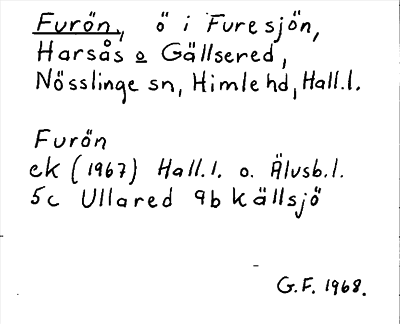 Furön, ö i Furesjön,
Harsås o Gällsered,
Nösslinge sn, Himle hd, Hall.l.
Furön
ek (1967) Hall.l. o. Älvsb.l.
5c Ullared 9b Källsjö
G.F. 1968.